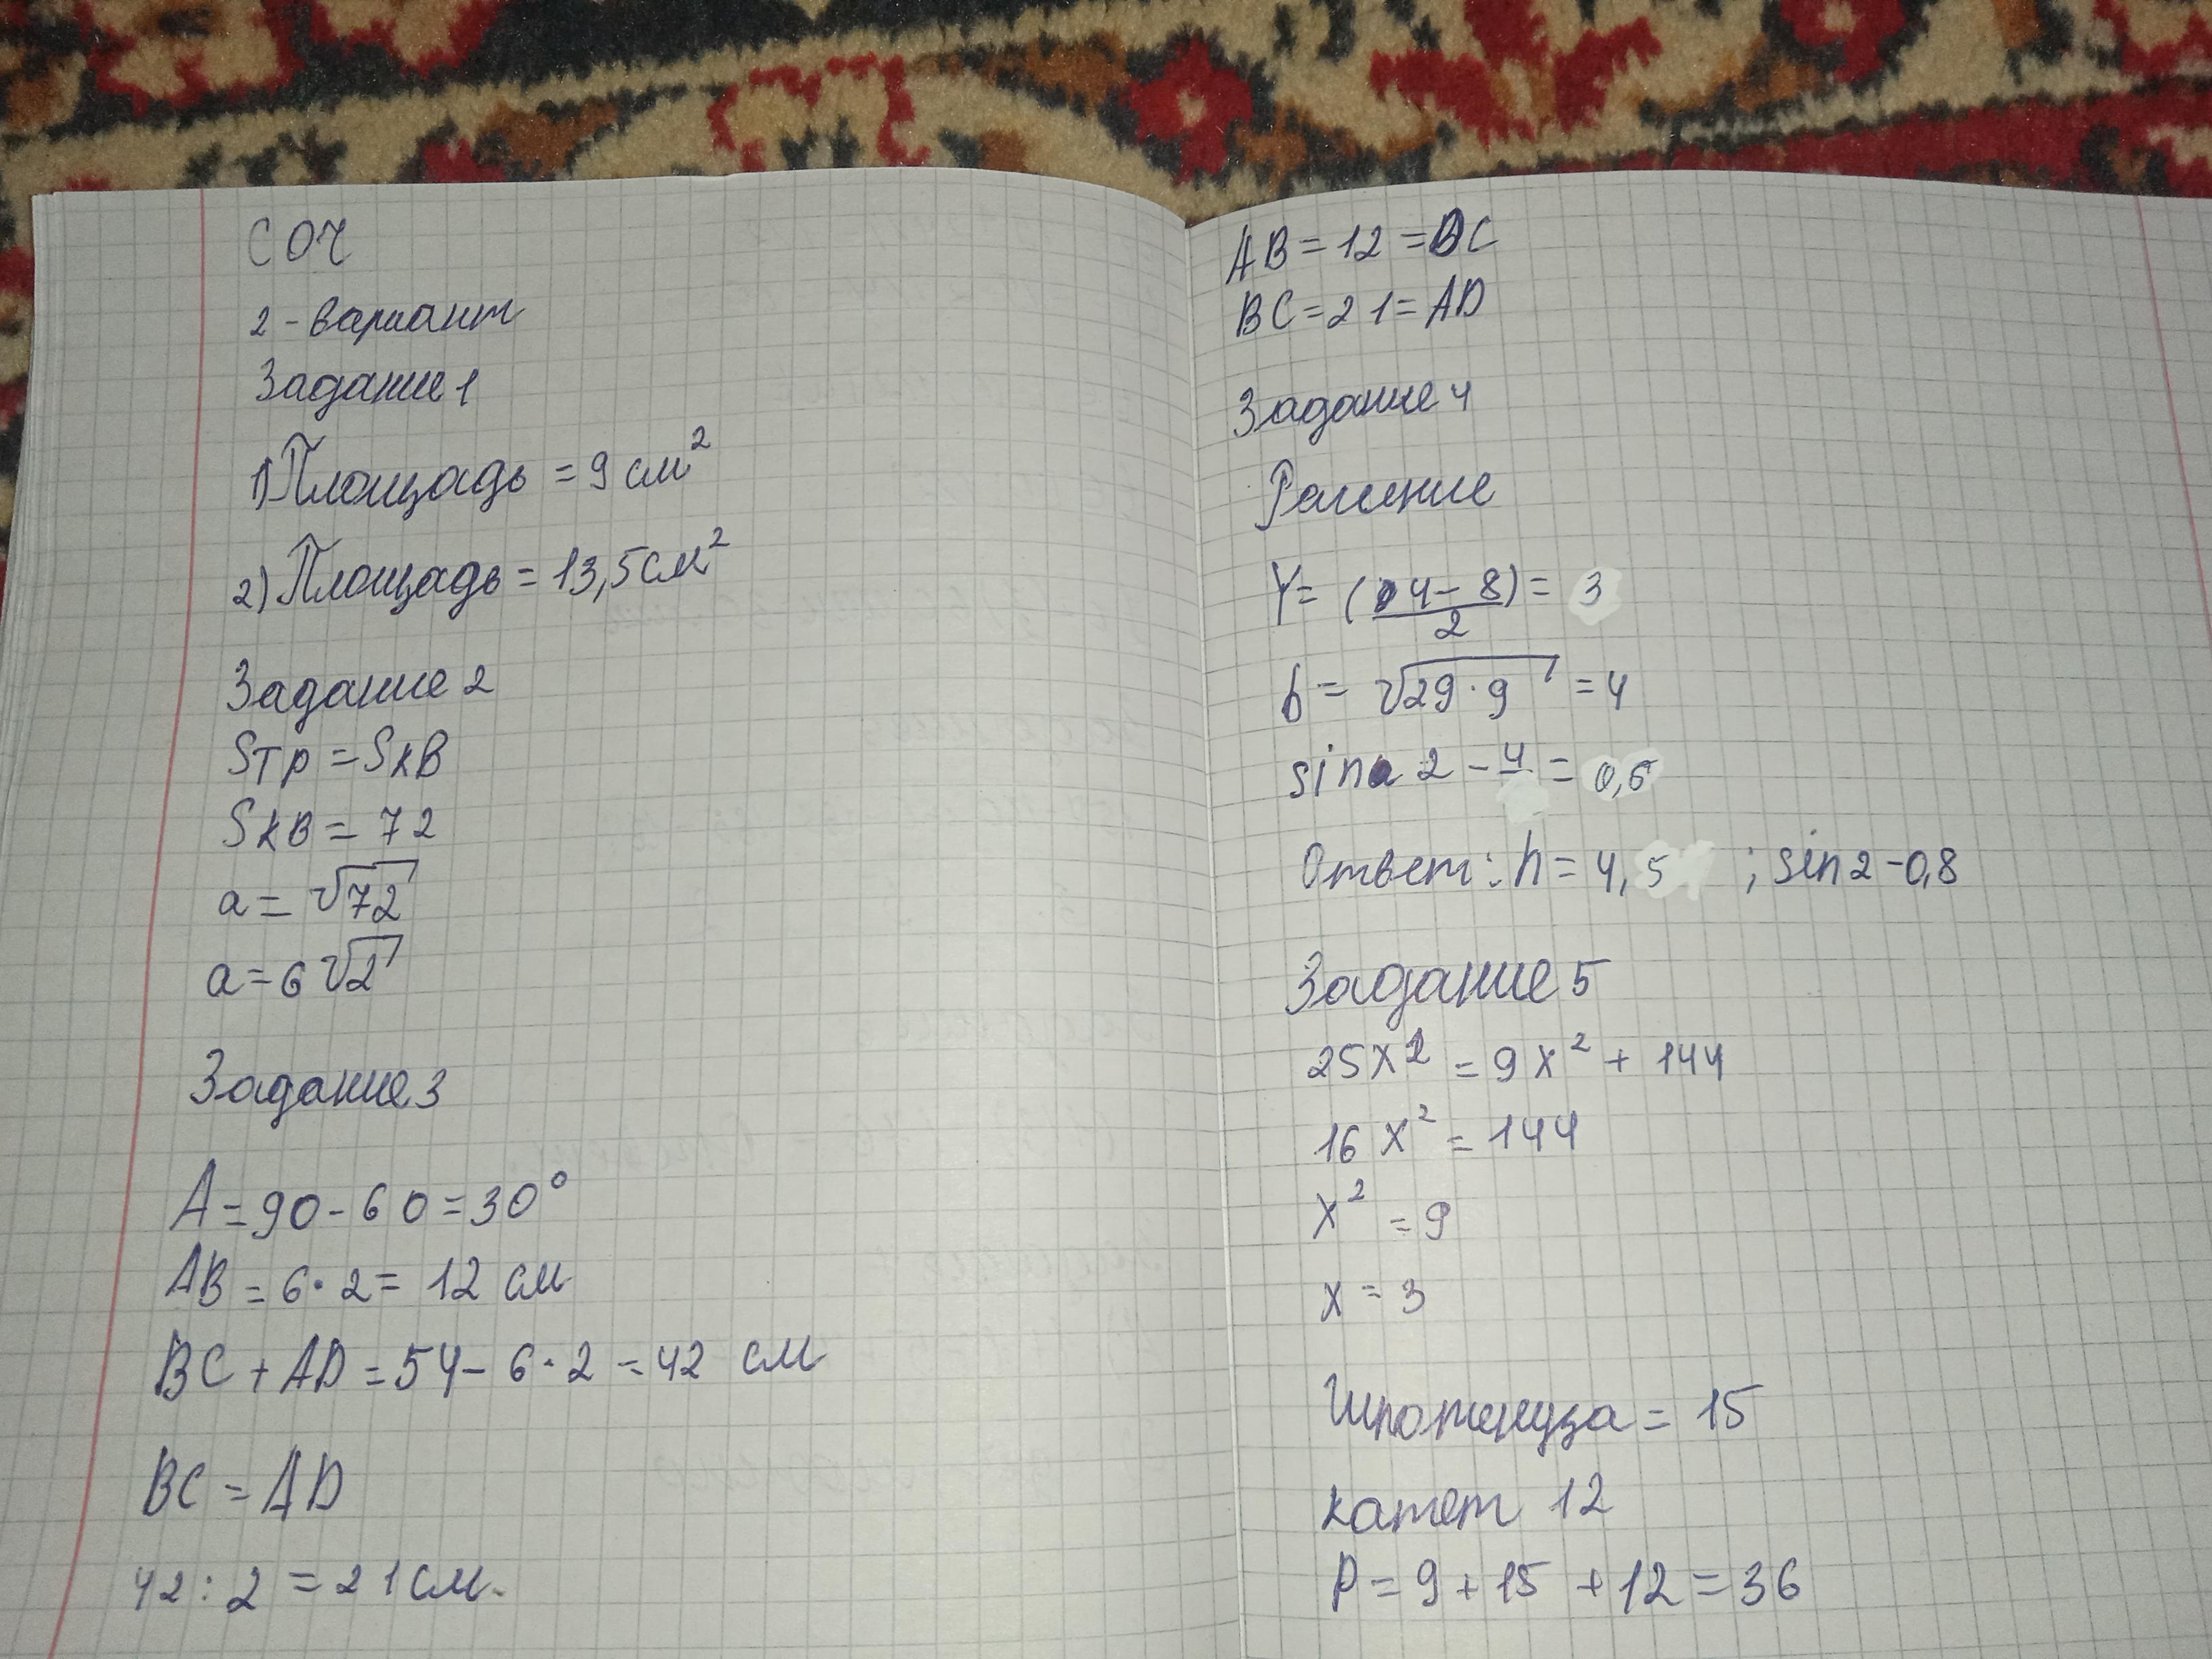 СОЧ
2-вариант
Задание 1
1) Площадь = 9 см²
2) Площадь = 13,5 см²
Задание 2
Sтр = Sкв
Sкв = 72
a = √72
a = 6√2
Задание 3
A = 90 - 60 = 30°
AB = 6 · 2 = 12 см
BC + AD = 54 - 6 · 2 = 42 см
BC = AD
42 : 2 = 21 см.
AB = 12 = DC
BC = 21 = AD
Задание 4
Решение
Y = (4 - 8)/2 = 3
b = √29·9 = 4
sina 2 - 4 = 0,6
Ответ: h = 4,5 ; sin 2 - 0,8
Задание 5
25x² = 9x² + 144
16x² = 144
x² = 9
x = 3
Гипотенуза = 15
катет 12
P = 9 + 15 + 12 = 36